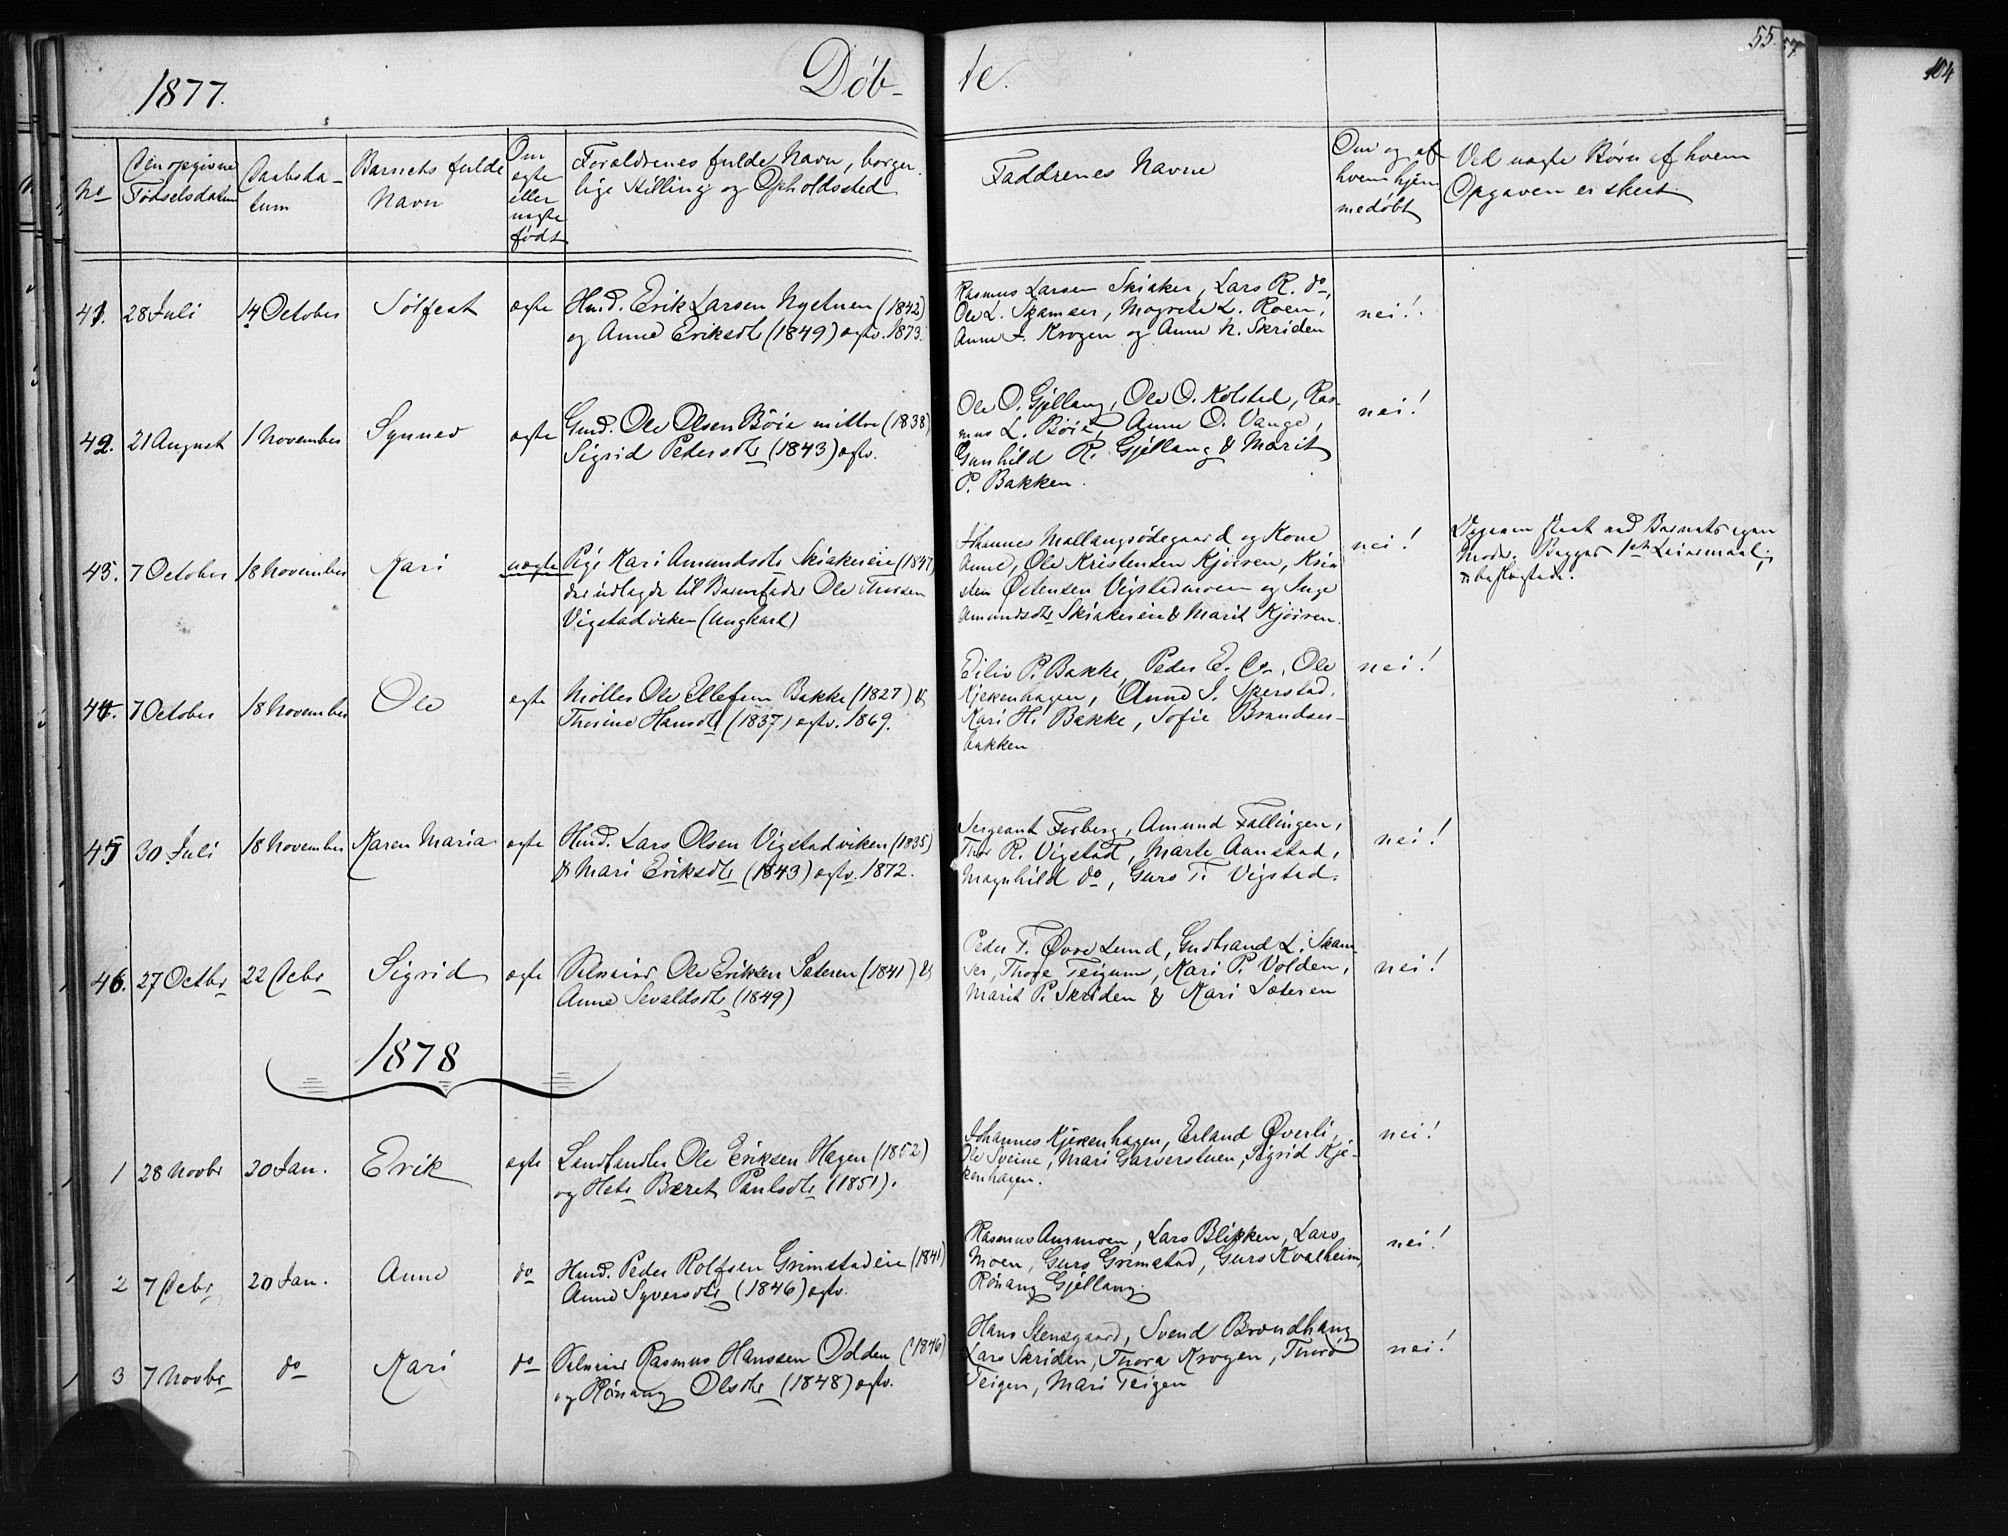 1877.
Døb-
te.
55.
57
104
No
Den opgivne
Fødselsdatum
Daabsda-
tum
Barnets fulde
Navn
Om
ægte
eller
uægte
født
Forældrenes fulde Navn, borger
lige Stilling og Opholdssted
Faddrenes Navne
Om og af
hvem hjem
medøbt
Ved uægte Børn af hvem
Opgaven er skeet
41. 28 Juli 14 October Sølfest ægte Hmd. Erik Larsen Nystuen (1842)
og Anne Eriksdtr (1849) egtv. 1873.
Rasmus Larsen Skiaker, Lars R. do,
Ole L. Skamser, Magrete L. Roen,
Anne I. Krogen og Anne N. Skriden
nei!
42. 21 August 1 November Synnev ægte Gmd. Ole Olsen Bøie mittre (1838)
Sigrid Pedersdtr (1843) egtv.
Ole O. Gjellang, Ole O. Kolstad, Ras-
mus L. Bøie, Anne O. Vange,
Gunhild R. Gjellang & Marit
P. Bakken.
nei!
43. 7 October 18 November Kari uægte Pige Kari Amundsdtr Skiakereie (1847)
der udlagde til Barnefader Ole Thorsen
Vigstadviken (Ungkarl)
Johannes Mallangsødegaard og Kone
Anne, Ole Kristensen Kjørren, Kris
sten Østensen Vigstadmoen og Inge
Amundsdtr Skiakereie & Marit Kjørren.
nei!
skeet ved Barnets egen
Moder. Begges 1ste Leiermaal;
ubeslægtede.
44. 7 October 18 November Ole ægte Møller Ole Ellefsen Bakke (1827) &
Thorine Hansdtr (1837) egtv. 1869.
Eiliv P. Bakke, Peder E. Ole
Kjekenhagen, Anne S. Skerstad,
Kari H. Bakke, Sofie Brandser-
bakken
nei!
45 30 Juli 18 November Karen Maria ægte Hmd. Lars Olsen Vigstadviken (1835)
& Mari Eriksdtr (1843) egtv. 1872.
Sergeant Forberg, Amund Fallingen,
Thor R. Vigstad, Marte Aanstad,
Magnhild do, Guro T. Vigstad.
nei!
46. 27 Octbr 22 Debr Sigrid ægte Selveier Ole Eriksen Sæteren (1841) &
Anne Sevaldsdtr (1849)
Peder T. Øvre Lund, Gudbrand L. Skam-
ser, Thore Teigum, Kari P. Volden,
Marit P. Skriden & Kari Sæteren
nei!
1878
1 28 Novbr 20 Jan. Erik ægte Landhandler Ole Eriksen Hagen (1852)
og Hstr Beret Paulsdtr (1851).
Johannes Kjekenhagen, Erland Øverli,
Ole Sveine, Mari Garverstuen, Sigrid Kje-
kenhagen.
nei!
2 7 Debr 20 Jan. Anne do Hmd. Peder Rolfsen Grimstadeie (1841)
Anne Syversdtr (1846) egtv.
Rasmus Aurmoen, Lars Blikken, Lars
Moen, Guro Grimstad, Guro Kvalheim,
Rønaug Gjellang
nei!
3 7 Novbr do Kari do Selveier Rasmus Hanssen Odden (1846)
og Rønaug Olsdtr (1848) egtv.
Hans Stensgaard, Svend Brændhaug
Lars Skriden, Thora Krogen, Thora
Teigen, Mari Teigen
nei!